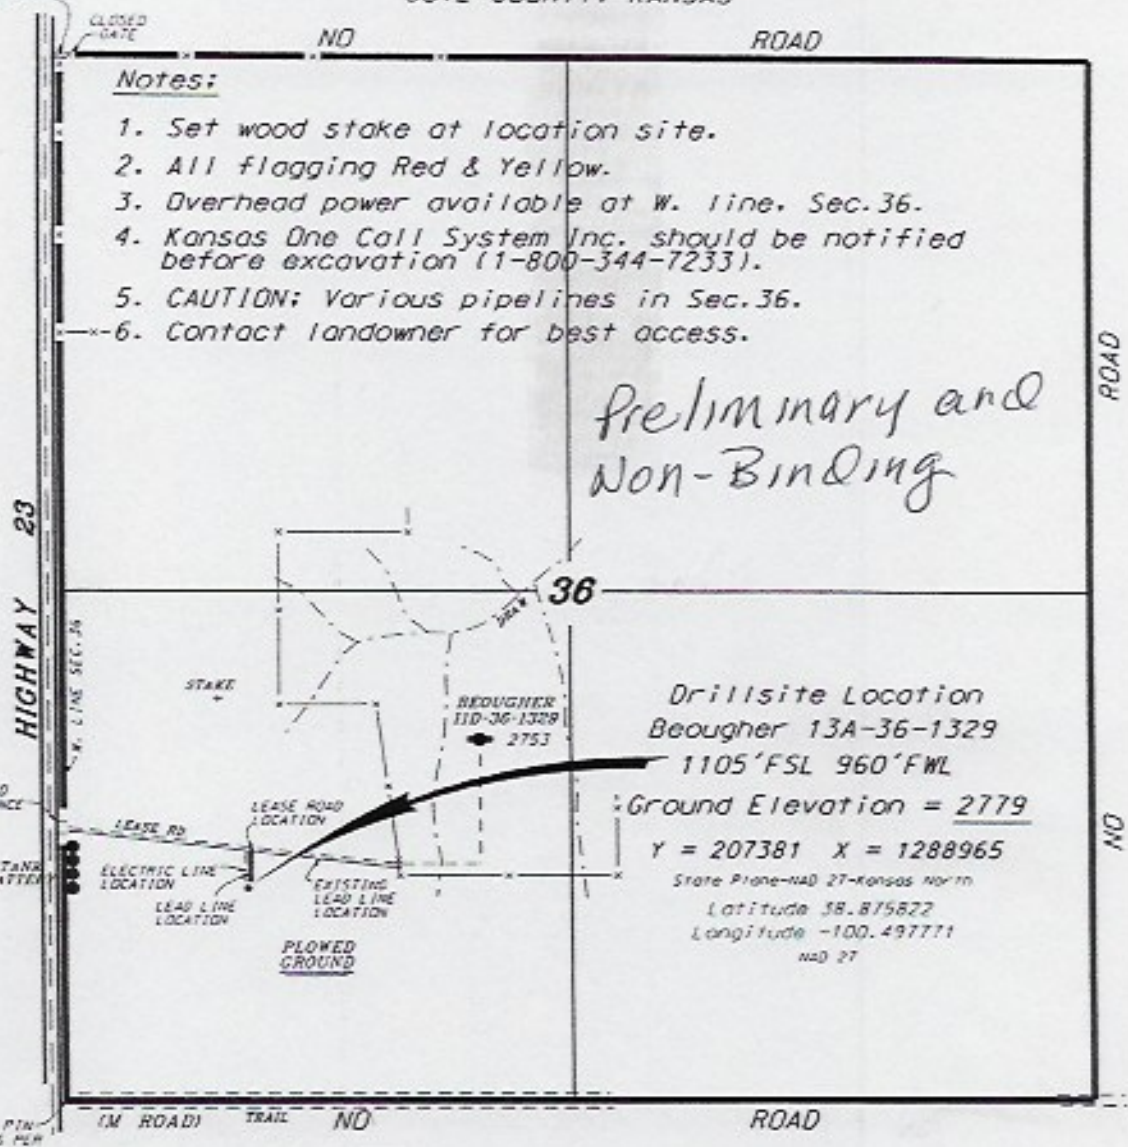 CLOSED
GATE
NO ROAD
Notes:
1. Set wood stake at location site.
2. All flagging Red & Yellow.
3. Overhead power available at W. line, Sec.36.
4. Kansas One Call System Inc. should be notified
before excavation (1-800-344-7233).
5. CAUTION: Various pipelines in Sec.36.
6. Contact landowner for best access.
ROAD
Preliminary and
Non-Binding
HIGHWAY 23
36
DRAW
W. LINE SEC.36
STAKE
BEOUGHER
11D-36-1329
2753
Drillsite Location
Beougher 13A-36-1329
1105'FSL 960'FWL
Ground Elevation = 2779
Y = 207381 X = 1288965
State Plane-NAD 27-Kansas North
Latitude 38.875822
Longitude -100.497771
NAD 27
NO
LEASE ROAD
LOCATION
LEASE RD
ELECTRIC LINE
LOCATION
LEAD LINE
LOCATION
EXISTING
LEAD LINE
LOCATION
TANK
PLOWED
GROUND
PIN
PER
(M ROAD) TRAIL NO ROAD